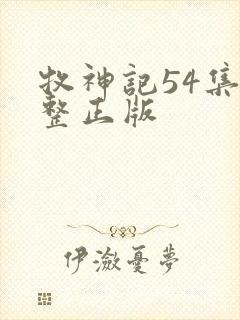 牧神記54集
整正版
伊瀲憂夢